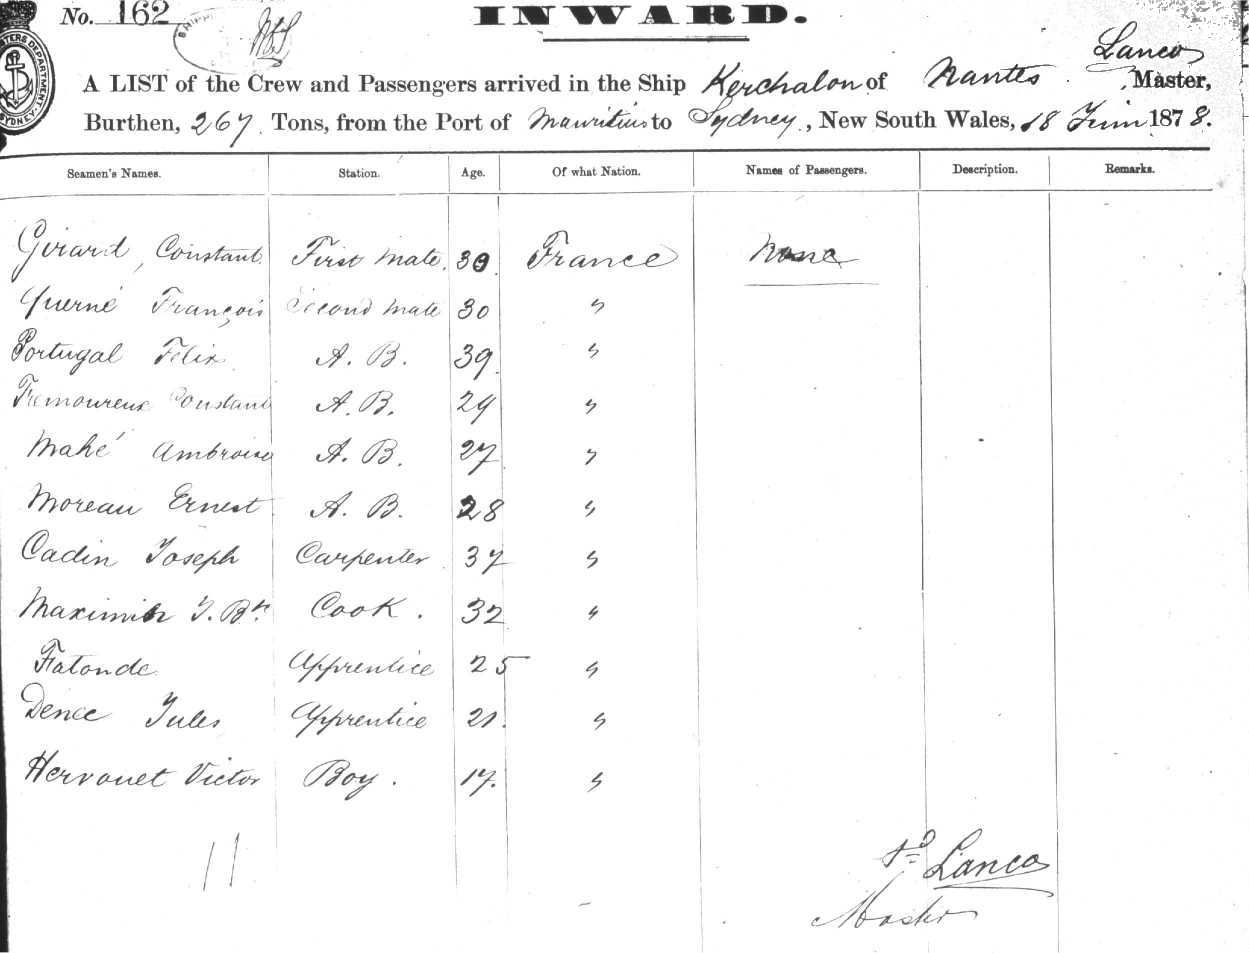 No. 162
INWARD.
Lanco
A LIST of the Crew and Passengers arrived in the Ship Kerchalon of Nantes, Master,
Burthen, 267 Tons, from the Port of Mauritius to Sydney, New South Wales, 18 Juin 1878.
Seamen's Names. Station. Age. Of what Nation. Names of Passengers. Description. Remarks.
Girard, Constant. First Mate. 30. France None
Querné François Second Mate 30 "
Portugal Félix. A. B. 39. "
Tremoureux Constant A. B. 29 "
Mahé Ambroise A. B. 27 "
Moreau Ernest. A. B. 28 "
Cadin Joseph Carpenter 37 "
J. Bte. Cook. 32 "
Fatonde. Apprentice 25 "
Jules Apprentice 21. "
Hervouet Victor Boy. 17. "
11
Lanco
Master